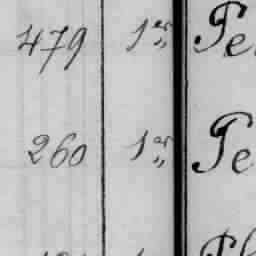 479 1er Pe
260 1er Pe